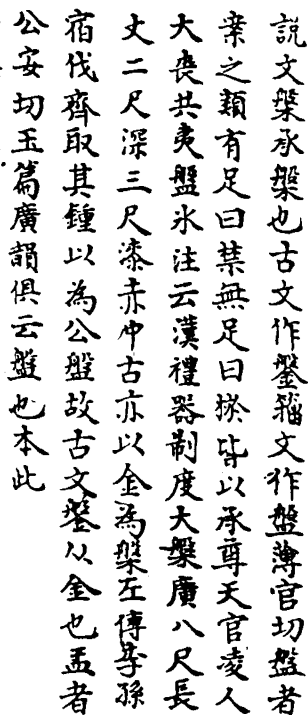 説文槃承槃也古文作鎜籀文作盤薄官切盤者
棜之類有足曰禁無足曰棜皆以承尊天官凌人
大喪共夷盤氷注云漢禮器制度大槃廣八尺長
丈二尺深三尺漆赤中古亦以金為槃左傳季孫
宿伐齊取其鍾以為公盤故古文鎜从金也盂者
公安切玉篇廣韻俱云盤也本此